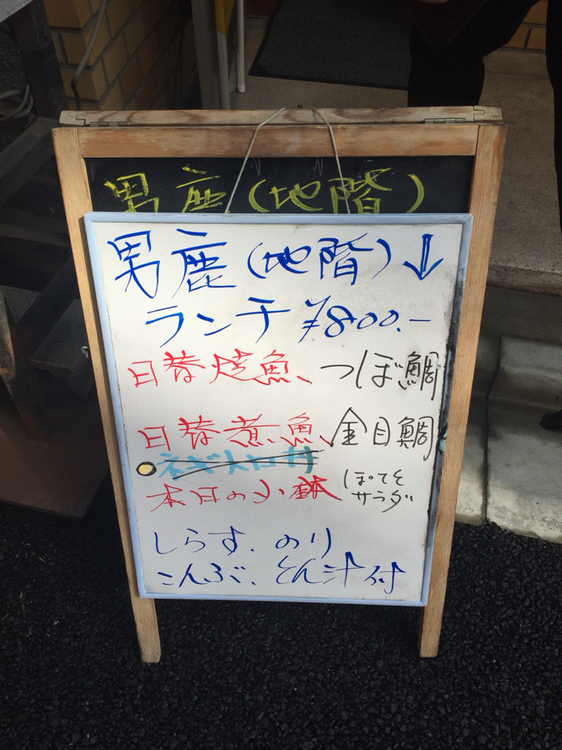 男鹿(地階)
男鹿(地階)↓
ランチ ¥800.-
日替焼魚、つぼ鯛
日替煮魚、金目鯛
ネギトロ丼
本日の小鉢 ぽてと
サラダ
しらす、のり
こんぶ、とん汁付